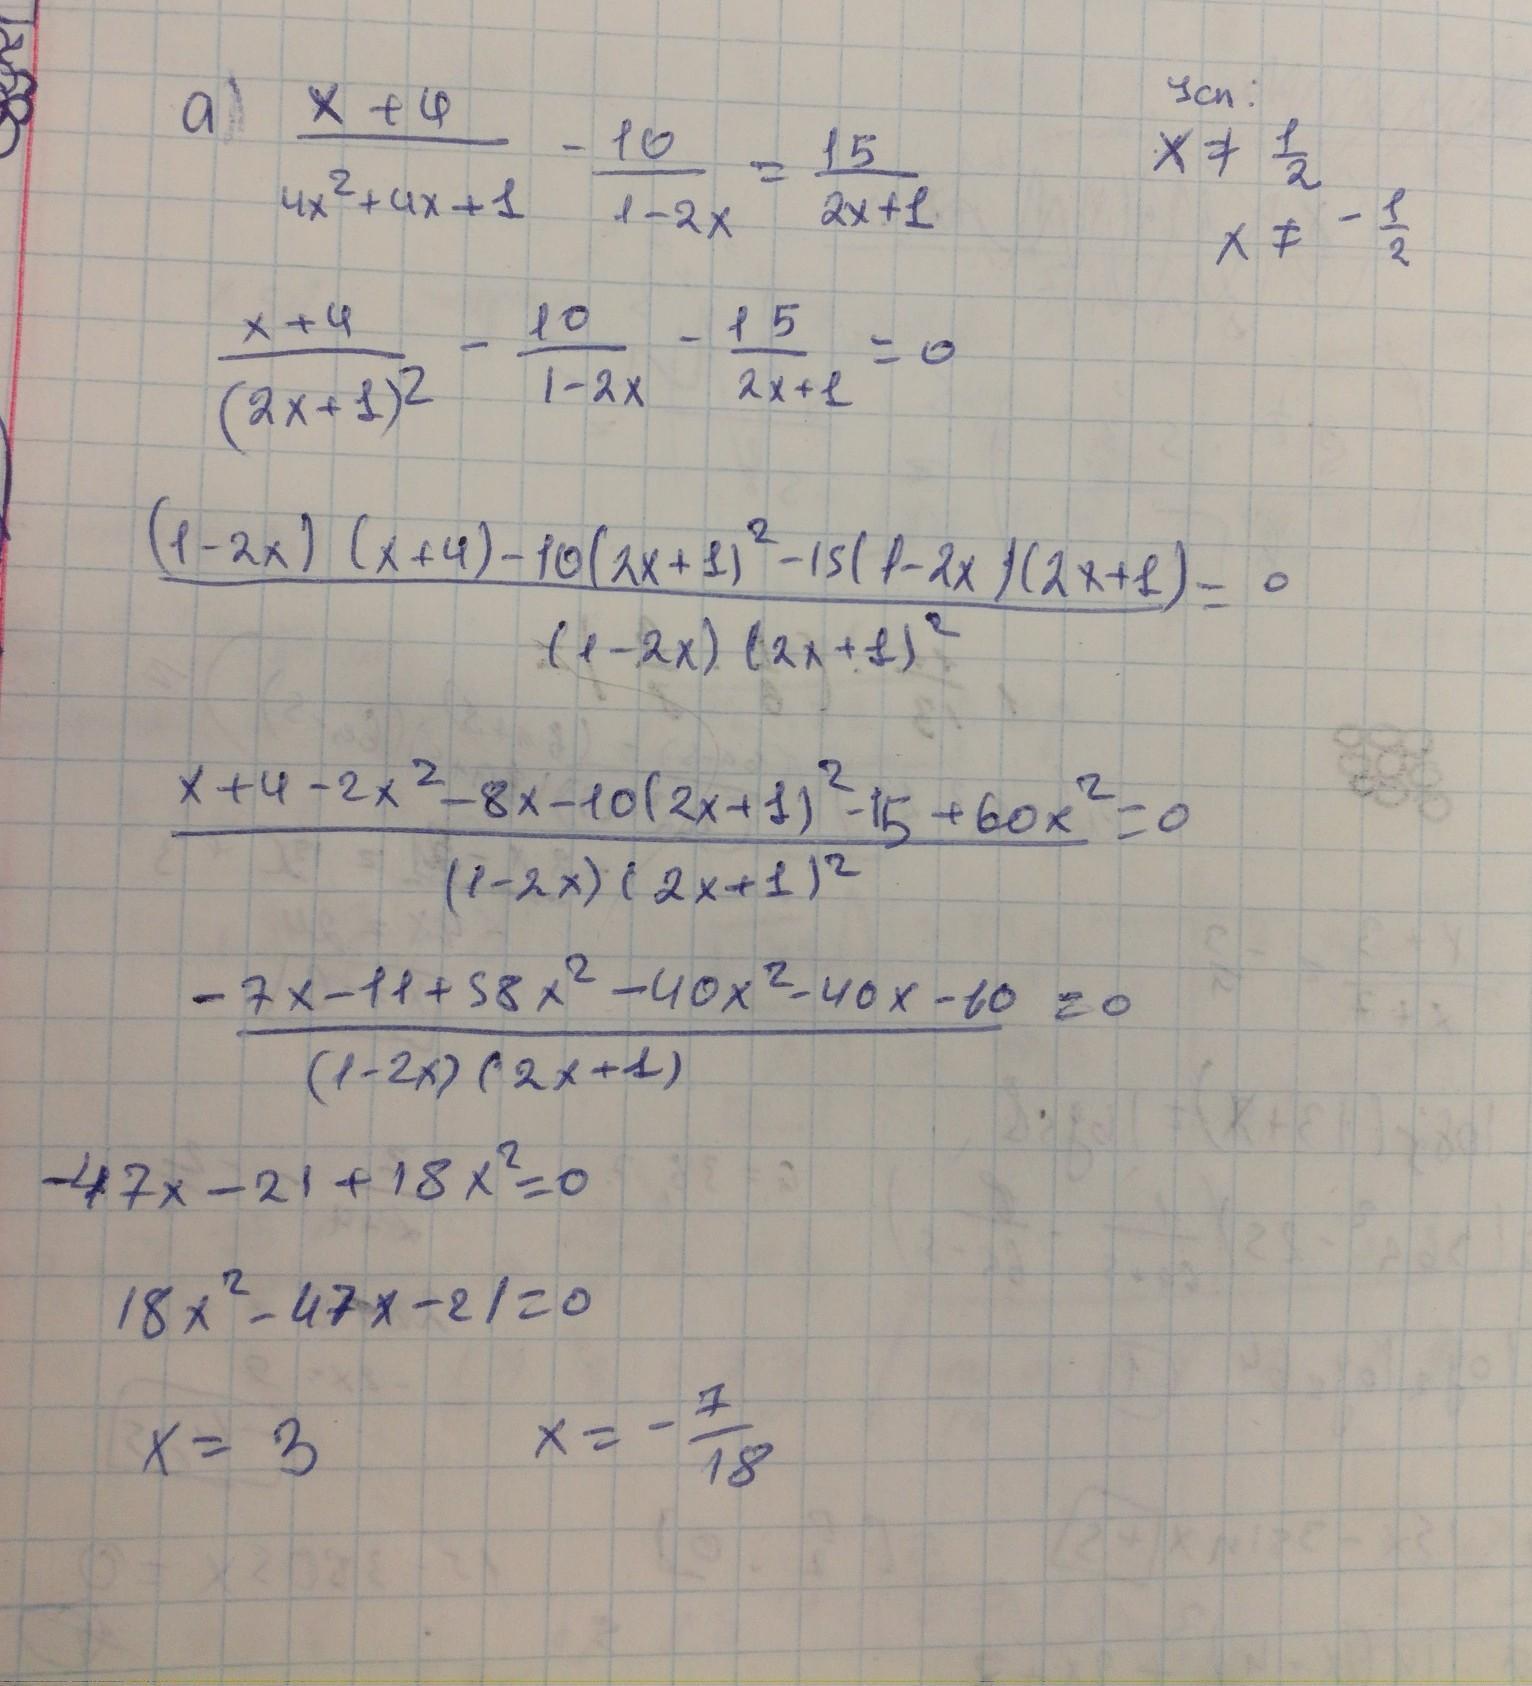 а) (x+4)/(4x²+4x+1) - 10/(1-2x) = 15/(2x+1)
Усл:
x ≠ 1/2
x ≠ -1/2
(x+4)/(2x+1)² - 10/(1-2x) - 15/(2x+1) = 0
((1-2x)(x+4)-10(2x+1)²-15(1-2x)(2x+1))/((1-2x)(2x+1)²) = 0
(x+4-2x²-8x-10(2x+1)²-15+60x²)/((1-2x)(2x+1)²) = 0
(-7x-11+58x²-40x²-40x-10)/((1-2x)(2x+1)) = 0
-47x-21+18x²=0
18x²-47x-21=0
x = 3 x = -7/18